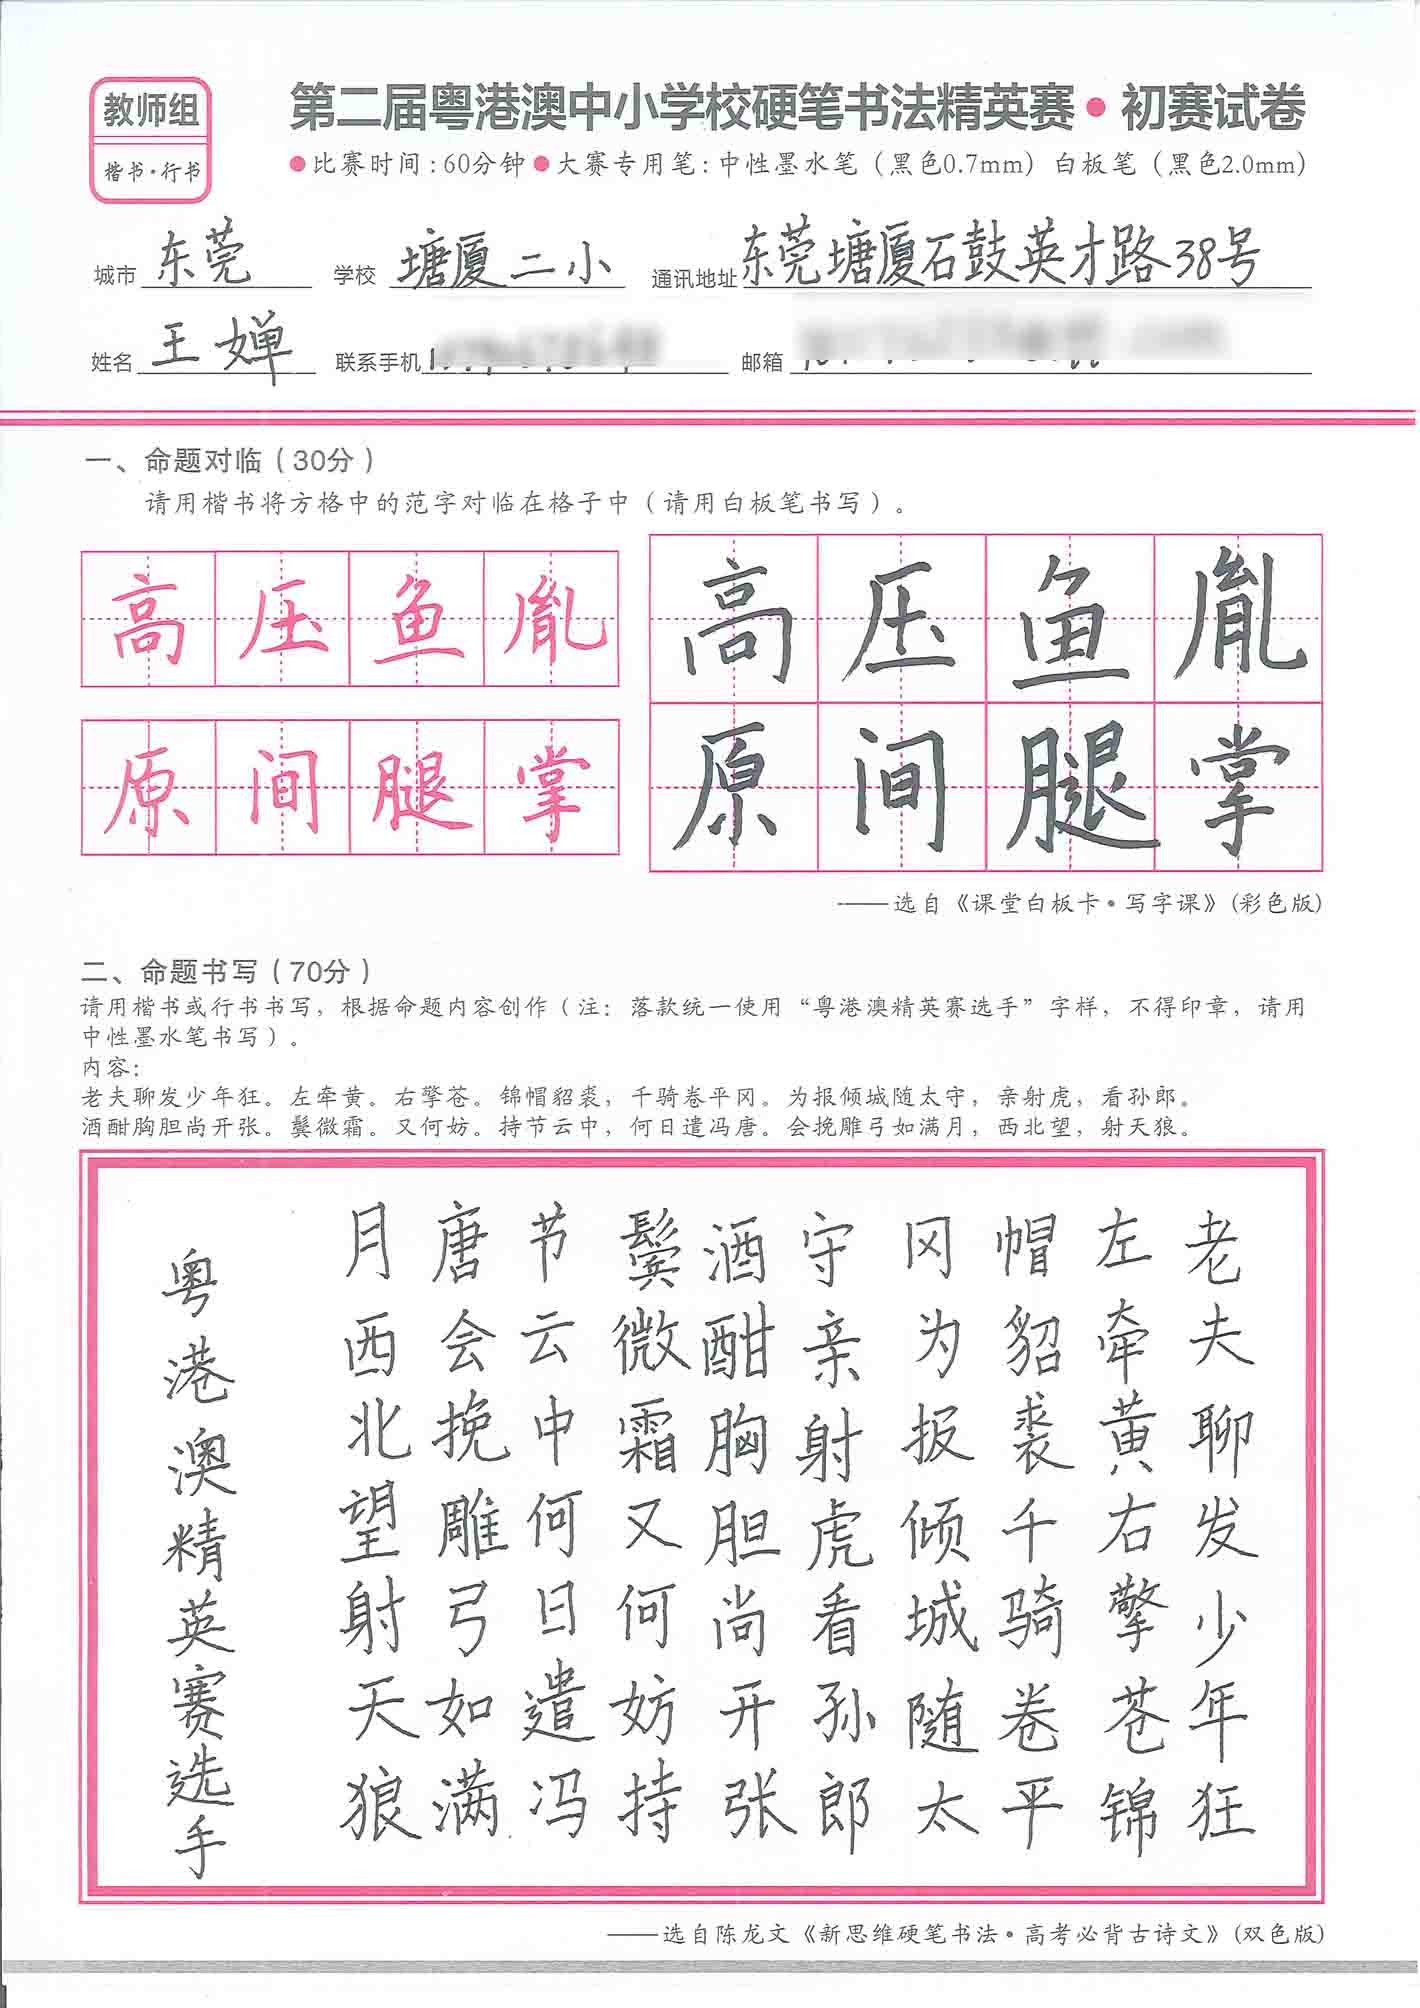 教师组
楷书·行书
第二届粤港澳中小学校硬笔书法精英赛·初赛试卷
●比赛时间:60分钟●大赛专用笔:中性墨水笔(黑色0.7mm) 白板笔(黑色2.0mm)
城市 东莞 学校 塘厦二小 通讯地址 东莞塘厦石鼓英才路38号
姓名 王婵 联系手机 邮箱
一、命题对临(30分)
请用楷书将方格中的范字对临在格子中(请用白板笔书写)。
高压鱼胤
原间腿掌
高压鱼胤
原间腿掌
——选自《课堂白板卡·写字课》(彩色版)
二、命题书写(70分)
请用楷书或行书书写,根据命题内容创作(注:落款统一使用“粤港澳精英赛选手”字样,不得印章,请用
中性墨水笔书写)。
内容:
老夫聊发少年狂。左牵黄。右擎苍。锦帽貂裘,千骑卷平冈。为报倾城随太守,亲射虎,看孙郎。
酒酣胸胆尚开张。鬓微霜。又何妨。持节云中,何日遣冯唐。会挽雕弓如满月,西北望,射天狼。
老夫聊发少年狂
左牵黄右擎苍锦
帽貂裘千骑卷平
冈为报倾城随太
守亲射虎看孙郎
酒酣胸胆尚开张
鬓微霜又何妨持
节云中何日遣冯
唐会挽雕弓如满
月西北望射天狼
粤港澳精英赛选手
——选自陈龙文《新思维硬笔书法·高考必背古诗文》(双色版)